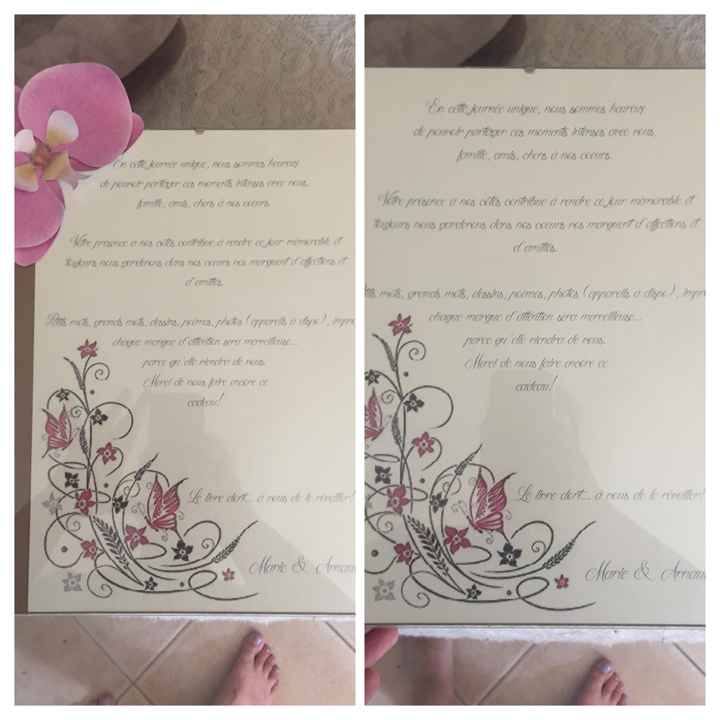 En cette journée unique, nous sommes heureux
de pouvoir partager ces moments intenses avec vous,
famille, amis, chers à nos coeurs.
Votre présence à nos côtés contribue à rendre ce jour mémorable et
toujours nous garderons dans nos coeurs vos marques d'affections et
d'amitiés.
Petits mots, grands mots, dessins, poèmes, photos (appareils à dispo),
chaque marque d'attention sera merveilleuse...
parce qu'elle viendra de vous.
Merci de nous faire encore ce
cadeau!
Le livre dort... à vous de le réveiller!
Marie &
En cette journée unique, nous sommes heureux
de pouvoir partager ces moments intenses avec vous,
famille, amis, chers à nos coeurs.
Votre présence à nos côtés contribue à rendre ce jour mémorable et
toujours nous garderons dans nos coeurs vos marques d'affections et
d'amitiés.
mots, grands mots, dessins, poèmes, photos (appareils à dispo),
chaque marque d'attention sera merveilleuse...
parce qu'elle viendra de vous.
Merci de nous faire encore ce
cadeau!
Le livre dort... à vous de le réveiller!
Marie &